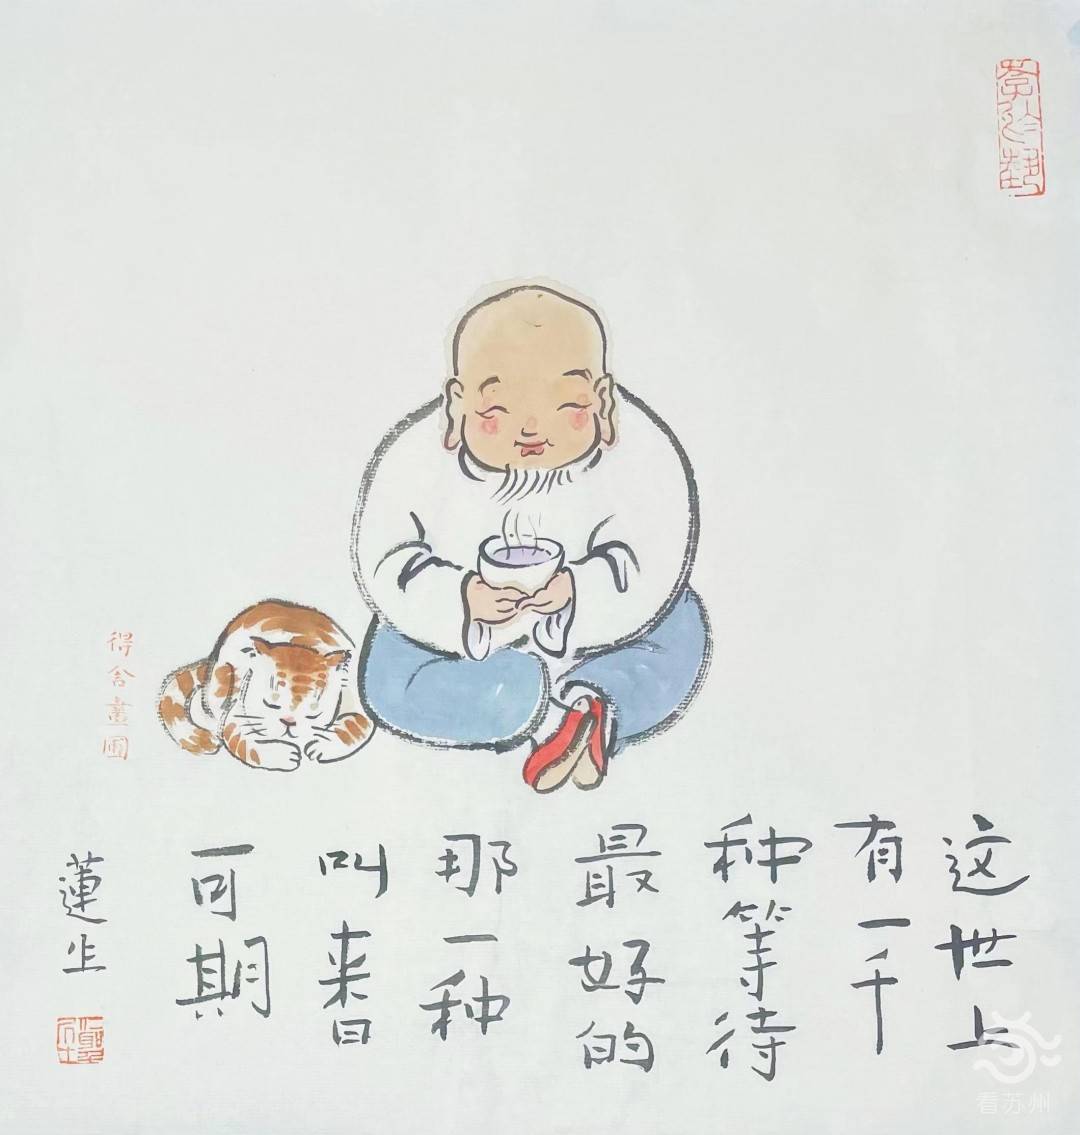 这世上
有一千
种等待
最好的
那一种
叫来日
可期
蓮生
得舍畫圃
看苏州